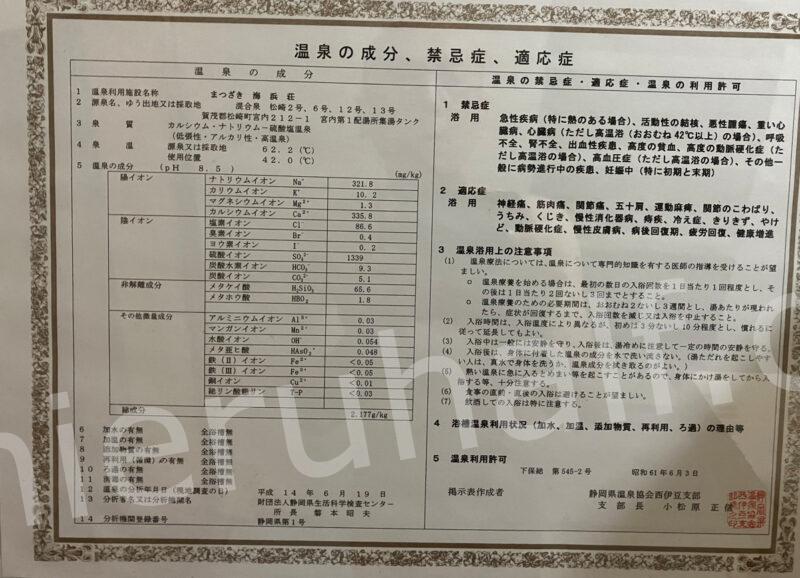 温泉の成分、禁忌症、適応症
温泉の成分
1 温泉利用施設名称 まつざき 海浜荘
2 源泉名、ゆう出地又は採取地 混合泉 松崎2号、6号、12号、13号
賀茂郡松崎町宮内212-1 宮内第1配湯所集湯タンク
3 泉質 カルシウム・ナトリウム-硫酸塩温泉
(低張性・アルカリ性・高温泉)
4 泉温 源泉又は採取地 62.2(℃)
使用位置 42.0(℃)
5 温泉の成分 (pH 8.5) (mg/kg)
陽イオン ナトリウムイオン Na⁺ 321.8
カリウムイオン K⁺ 10.2
マグネシウムイオン Mg²⁺ 1.3
カルシウムイオン Ca²⁺ 335.8
陰イオン 塩素イオン Cl⁻ 86.6
臭素イオン Br⁻ 0.4
ヨウ素イオン I⁻ 0.2
硫酸イオン SO₄²⁻ 1339
炭酸水素イオン HCO₃⁻ 9.3
炭酸イオン CO₃²⁻ 5.1
非解離成分 メタケイ酸 H₂SiO₃ 65.6
メタホウ酸 HBO₂ 1.8
その他微量成分 アルミニウムイオン Al³⁺ 0.03
マンガンイオン Mn²⁺ 0.03
水酸イオン OH⁻ 0.054
メタ亜ヒ酸 HAsO₂ 0.048
鉄(II)イオン Fe²⁺ <0.05
鉄(III)イオン Fe³⁺ <0.05
銅イオン Cu²⁺ <0.01
総リン酸態リン T-P <0.03
総成分 2.177g/kg
6 加水の有無 全浴槽無
7 加温の有無 全浴槽無
8 添加物質の有無 全浴槽無
9 再利用(循環)の有無 全浴槽無
10 ろ過の有無 全浴槽無
11 消毒の有無 全浴槽無
12 温泉の分析年月日(現地調査の日) 平成14年6月19日
13 分析者名又は分析機関名 財団法人静岡県生活科学検査センター
所長 昭夫
14 分析機関登録番号 静岡県第1号
温泉の禁忌症・適応症・温泉の利用許可
1 禁忌症
浴用 急性疾病(特に熱のある場合)、活動性の結核、悪性腫瘍、重い心
臓病、心臓病(ただし高温浴(おおむね42℃以上)の場合)、呼吸
不全、腎不全、出血性疾患、高度の貧血、高度の動脈硬化症(た
だし高温浴の場合)、高血圧症(ただし高温浴の場合)、その他一
般に病勢進行中の疾患、妊娠中(特に初期と末期)
2 適応症
浴用 神経痛、筋肉痛、関節痛、五十肩、運動麻痺、関節のこわばり、
うちみ、くじき、慢性消化器病、痔疾、冷え症、きりきず、やけ
ど、動脈硬化症、慢性皮膚病、病後回復期、疲労回復、健康増進
3 温泉浴用上の注意事項
(1) 温泉療法については、温泉について専門的知識を有する医師の指導を受けることが望
ましい。
○ 温泉療養を始める場合は、最初の数日の入浴回数を1日当たり1回程度とし、そ
の後は1日当たり2回ないし3回までとすること。
○ 温泉療養のための必要期間は、おおむね2ないし3週間とし、湯あたりが現われ
たら、症状が回復するまで、入浴回数を減じ又は入浴を中止すること。
(2) 入浴時間は、入浴温度により異なるが、初めは3分ないし10分程度とし、慣れるに
従って延長してもよい。
(3) 入浴中は一般には安静を守り、入浴後は、湯冷めに注意して一定の時間の安静を守る。
(4) 入浴後は、身体に付着した温泉の成分を水で洗い流さない。(湯ただれを起こしやす
い人は、真水で身体を洗うか、温泉成分を拭き取るのがよい。)
(5) 熱い温泉に急に入るとめまい等を起こすことがあるので、身体にかけ湯をしてから入
浴する等、十分注意する。
(6) 食事の直前・直後の入浴は避けることが望ましい。
(7) 飲酒しての入浴は特に注意する。
4 浴槽温泉利用状況(加水、加温、添加物質、再利用、ろ過)の理由等
5 温泉利用許可
下保総 第545-2号 昭和61年6月3日
掲示表作成者 静岡県温泉協会西伊豆支部
支部長 小松原 正